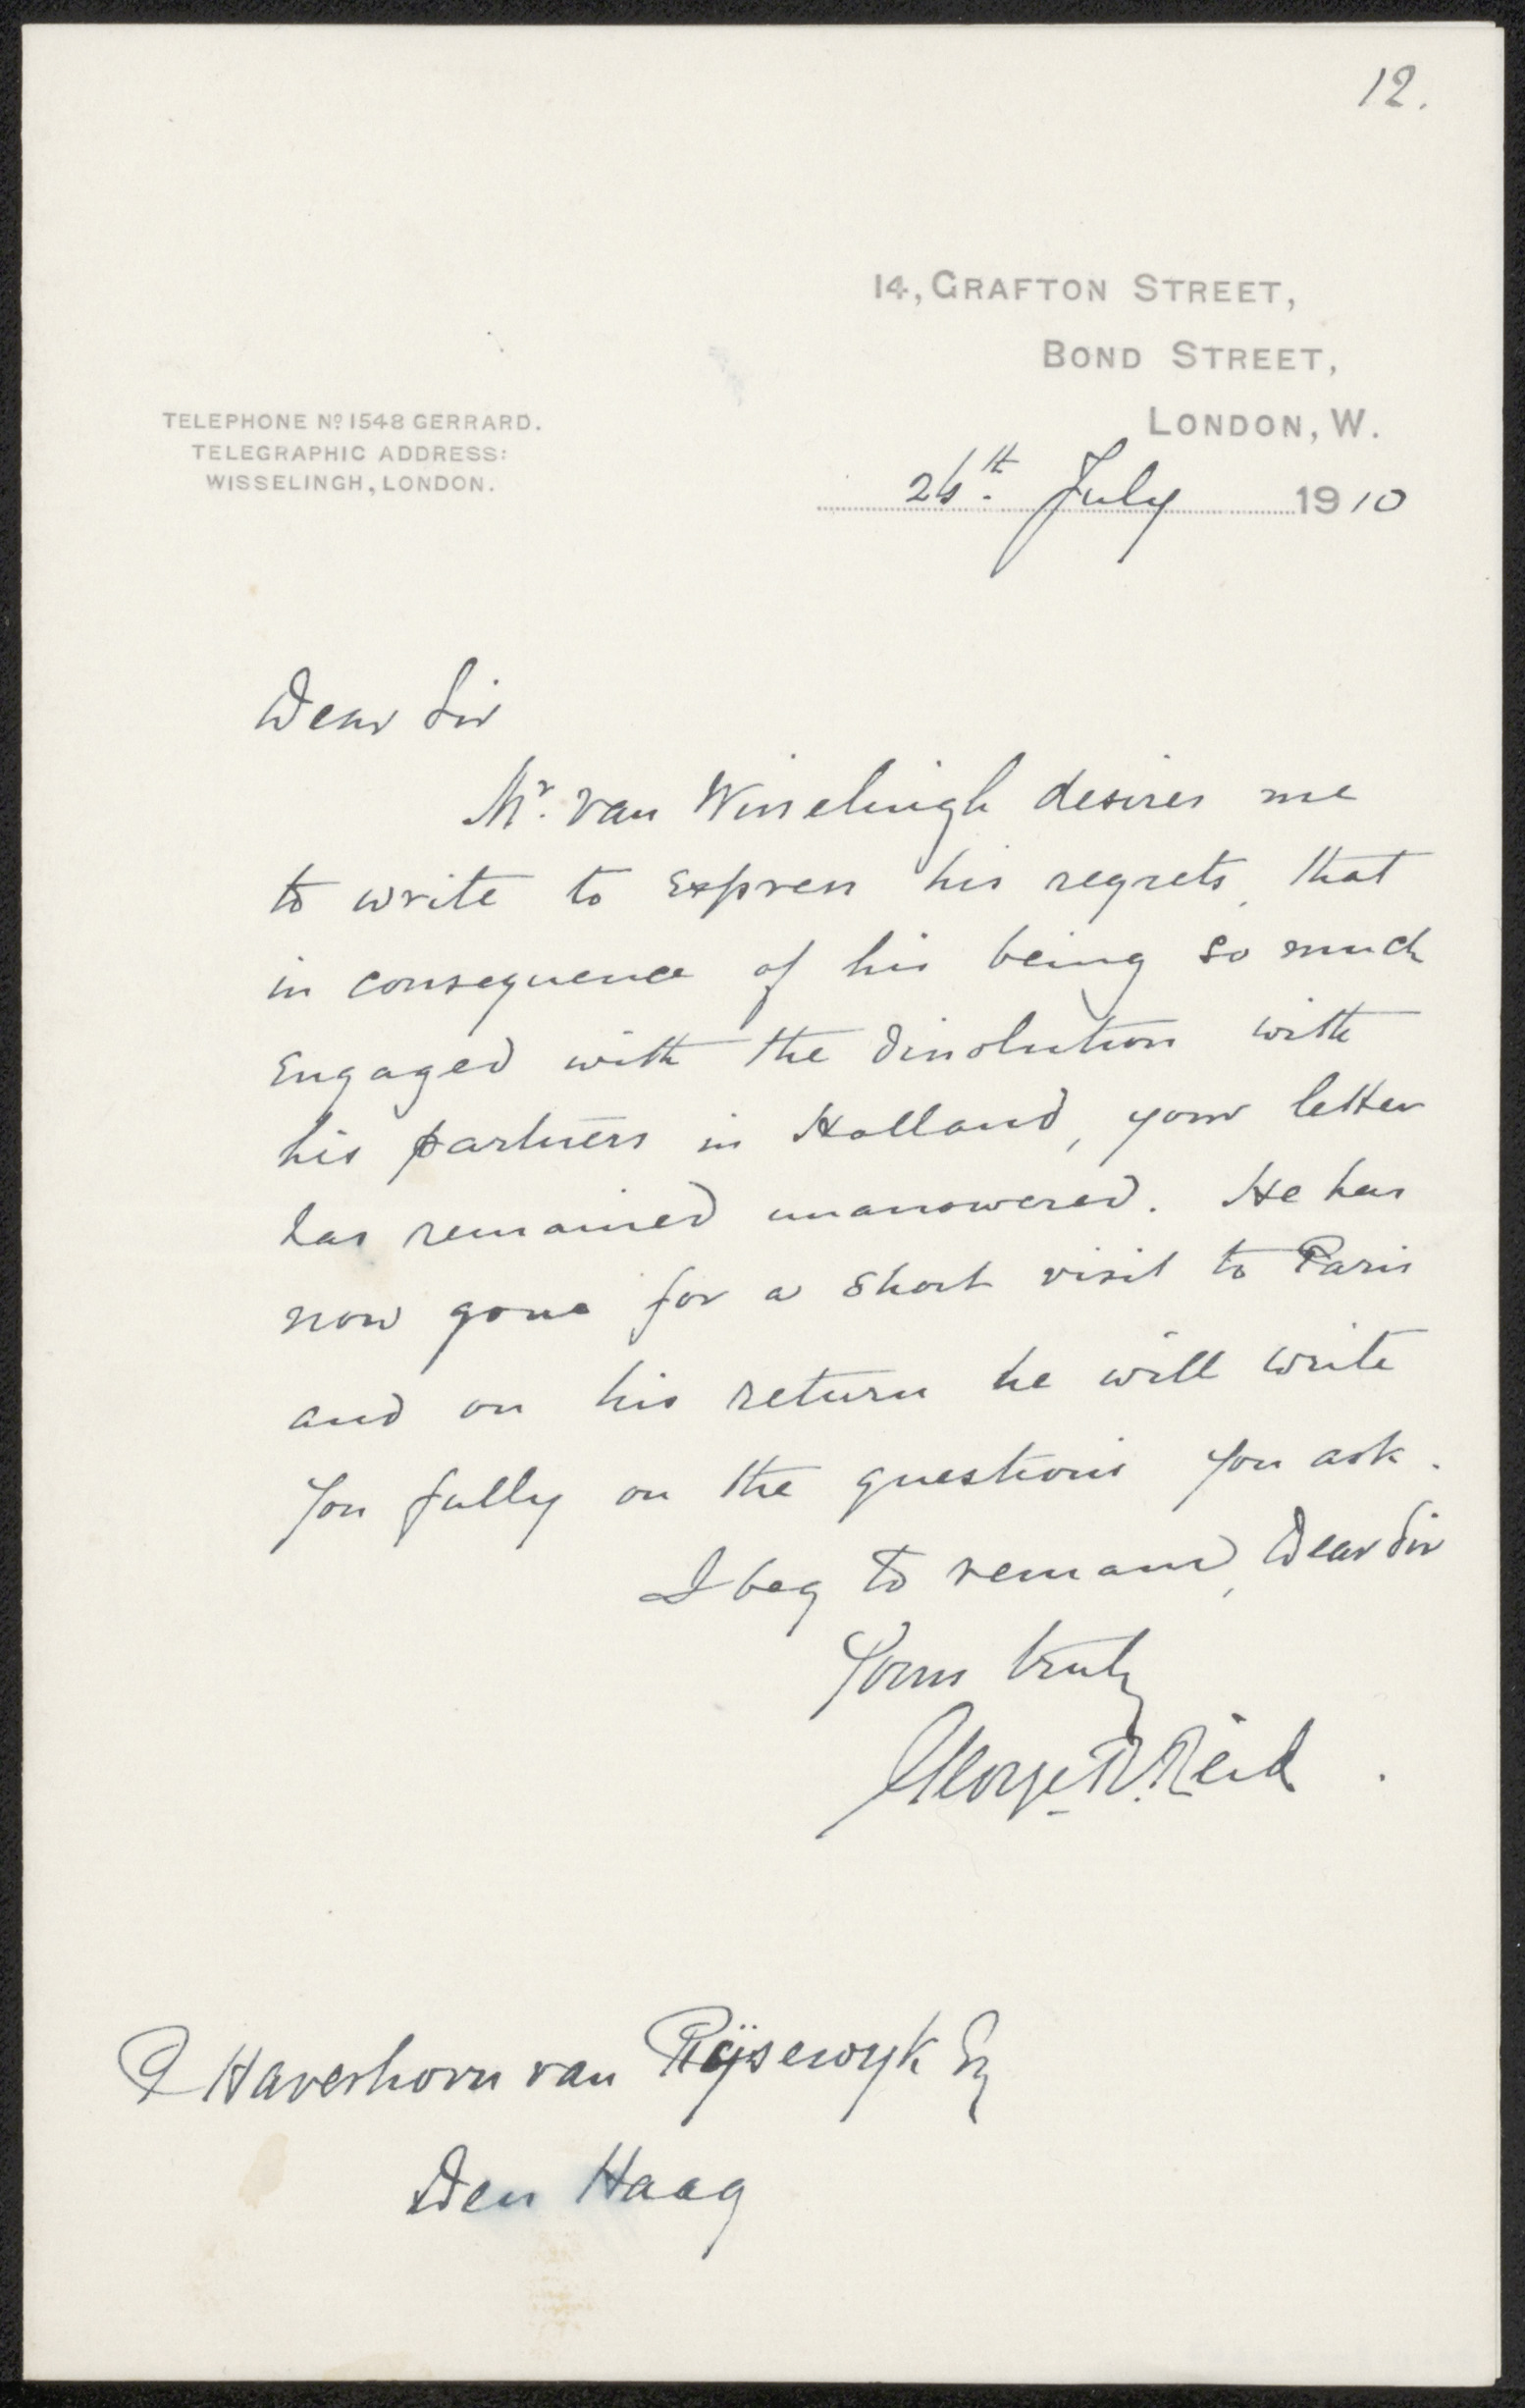 12.
14, GRAFTON STREET,
BOND STREET,
LONDON, W.
TELEPHONE Nº 1548 GERRARD.
TELEGRAPHIC ADDRESS:
WISSELINGH, LONDON.
26th. July 1910
Dear Sir
Mr. van Wisselingh desires me
to write to express his regrets, that
in consequence of his being so much
engaged with the dissolution with
his partners in Holland, your letter
has remained unanswered. He has
now gone for a short visit to Paris
and on his return he will write
you fully on the questions you ask.
I beg to remain, Dear Sir
Yours truly
George R. Reid.
P Haverkorn van Rijsewyk Esq
Den Haag